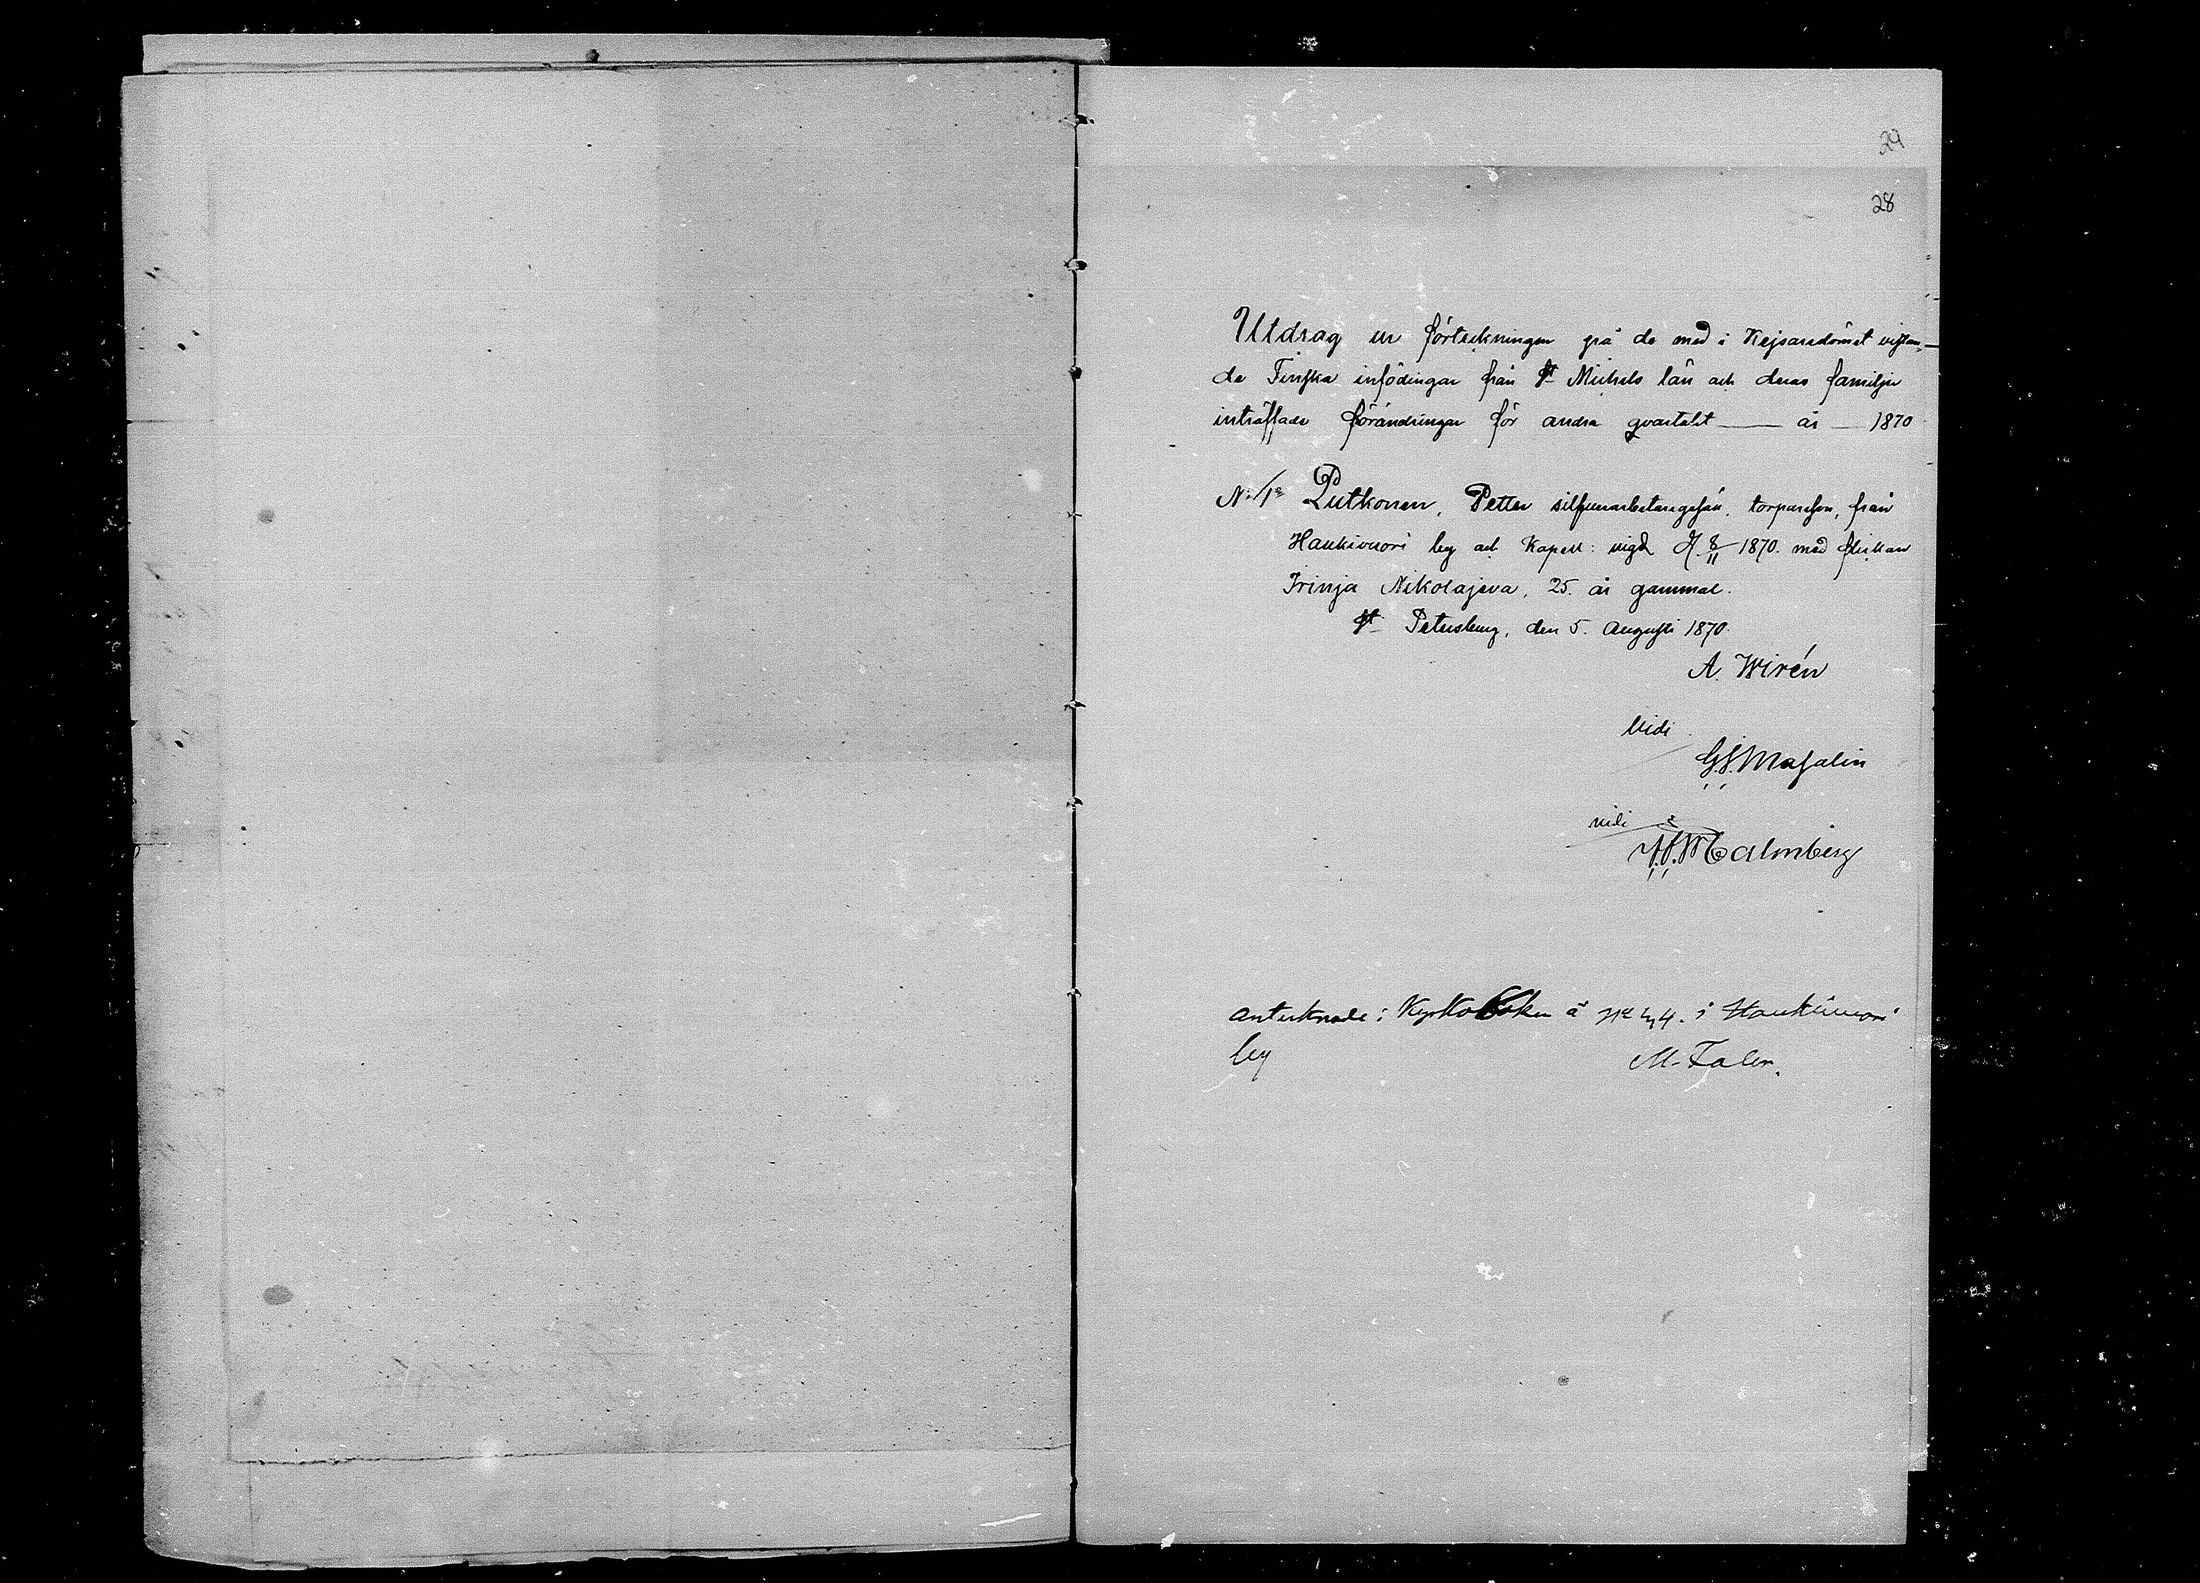 29
28
Utdrag ur förteckningen på de med i Kejsaredömet vistan-
de Finska infödingar från St Michels län och deras familjer
inträffade förändringar för andra qvartalet — år — 1870
No 1. Putkonen, Petter silfverarbetaregesän, torpareson, från
Haukivuori by och Kapell: vigd d. 8/11 1870. med flickan
Irinja Nikolajeva, 25. år gammal.
St Petersburg, den 5. Augusti 1870.
A. Wirén
Vidi
G. J. Masalin
vidi
Malmberg
Antecknade i Kyrkoboken å i Haukivuori
by M. Faler.